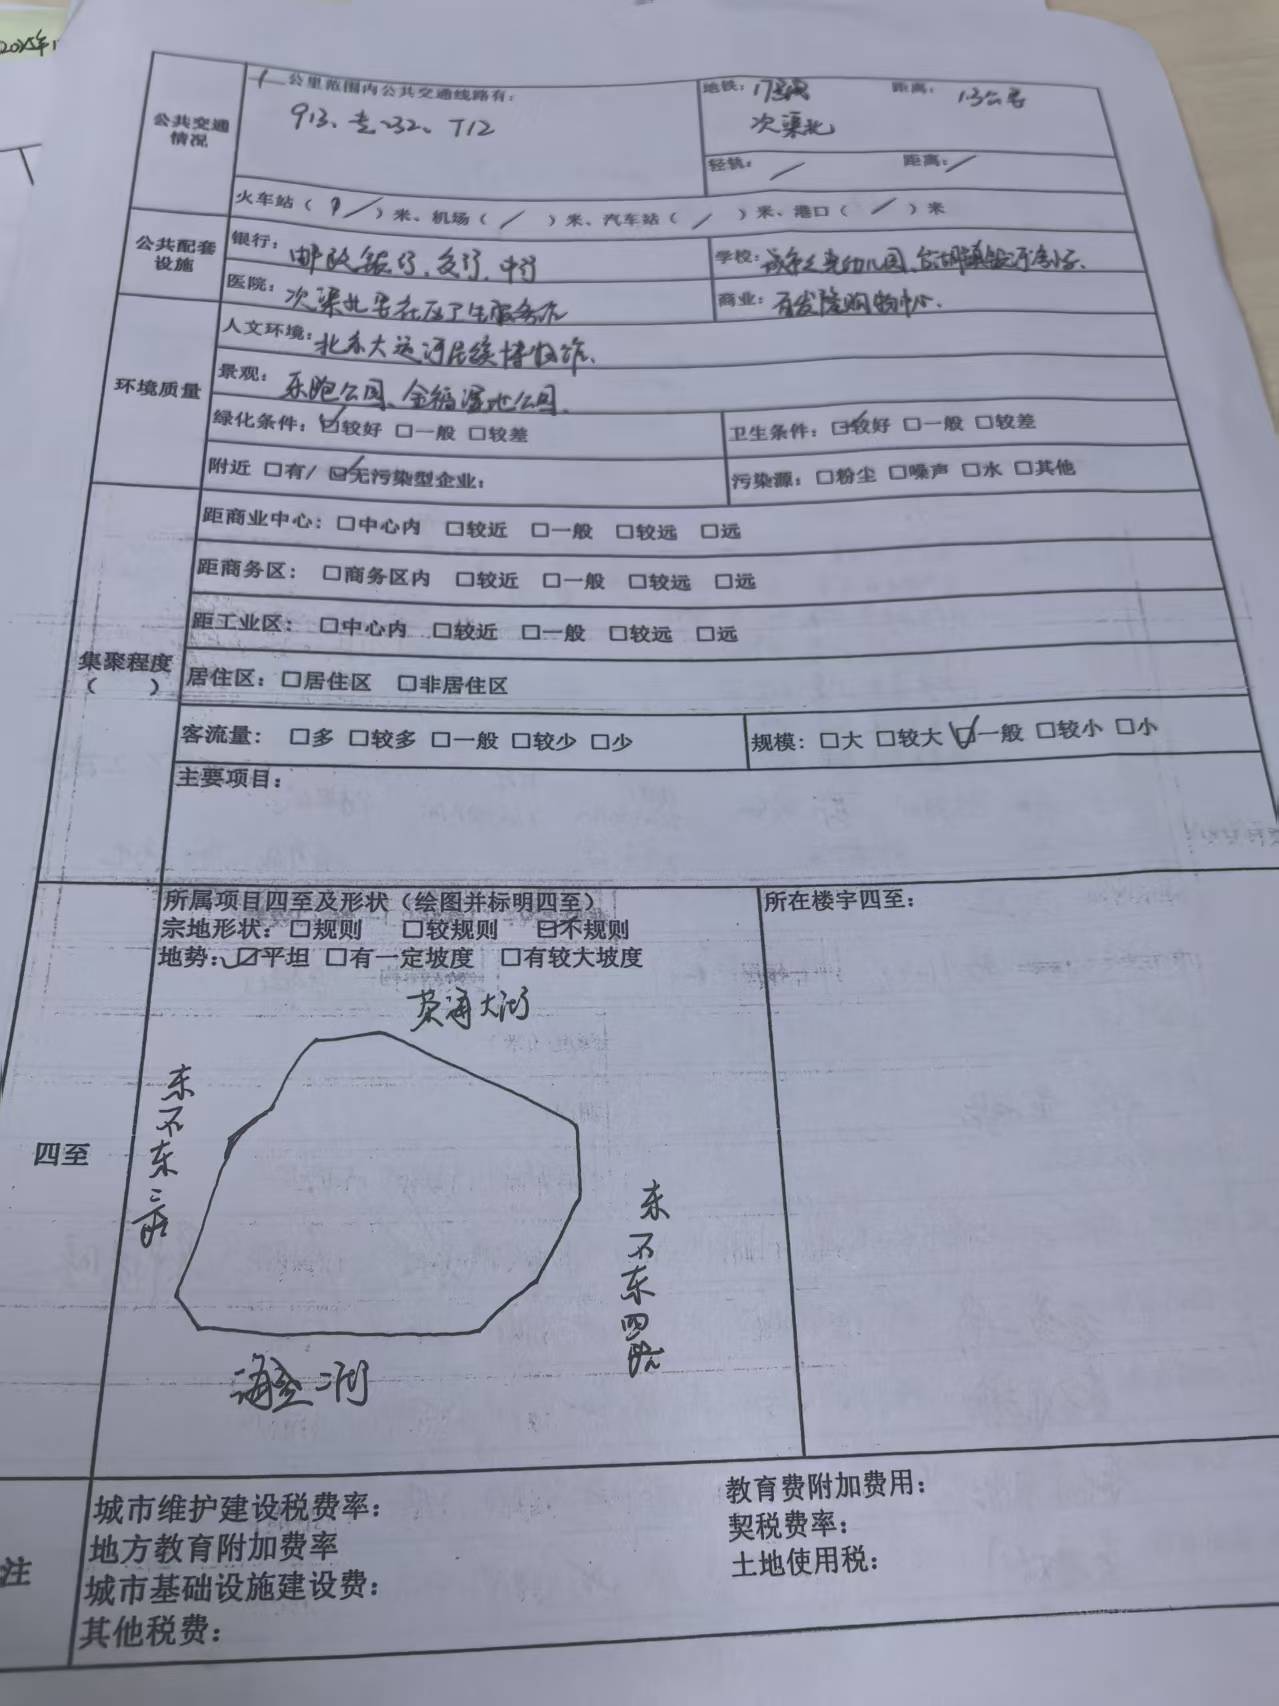 2025年1
公共交通情况
1 公里范围内公共交通线路有:
913、专232、T12
地铁: 17号线 距离: 1.3公里
次渠北
轻轨: / 距离: /
火车站( / )米、机场( / )米、汽车站( / )米、港口( / )米
公共配套设施
银行: 邮政银行、交行、中行
学校: 幼儿园、台湖镇
医院: 次渠北里社区卫生服务站
商业: 百发隆购物中心.
环境质量
人文环境: 北京大运河 博物馆、
景观: 东跑公园、金福湿地公园.
绿化条件: ☑较好 □一般 □较差
卫生条件: ☑较好 □一般 □较差
附近 □有/ ☑无污染型企业:
污染源: □粉尘 □噪声 □水 □其他
集聚程度
( )
距商业中心: □中心内 □较近 □一般 □较远 □远
距商务区: □商务区内 □较近 □一般 □较远 □远
距工业区: □中心内 □较近 □一般 □较远 □远
居住区: □居住区 □非居住区
客流量: □多 □较多 □一般 □较少 □少
规模: □大 □较大 ☑一般 □较小 □小
主要项目:
四至
所属项目四至及形状(绘图并标明四至)
宗地形状: □规则 □较规则 ☑不规则
地势: ☑平坦 □有一定坡度 □有较大坡度
所在楼宇四至:
东石东二路
东石东四路
注
城市维护建设税费率:
教育费附加费用:
地方教育附加费率
契税费率:
城市基础设施建设费:
土地使用税:
其他税费: